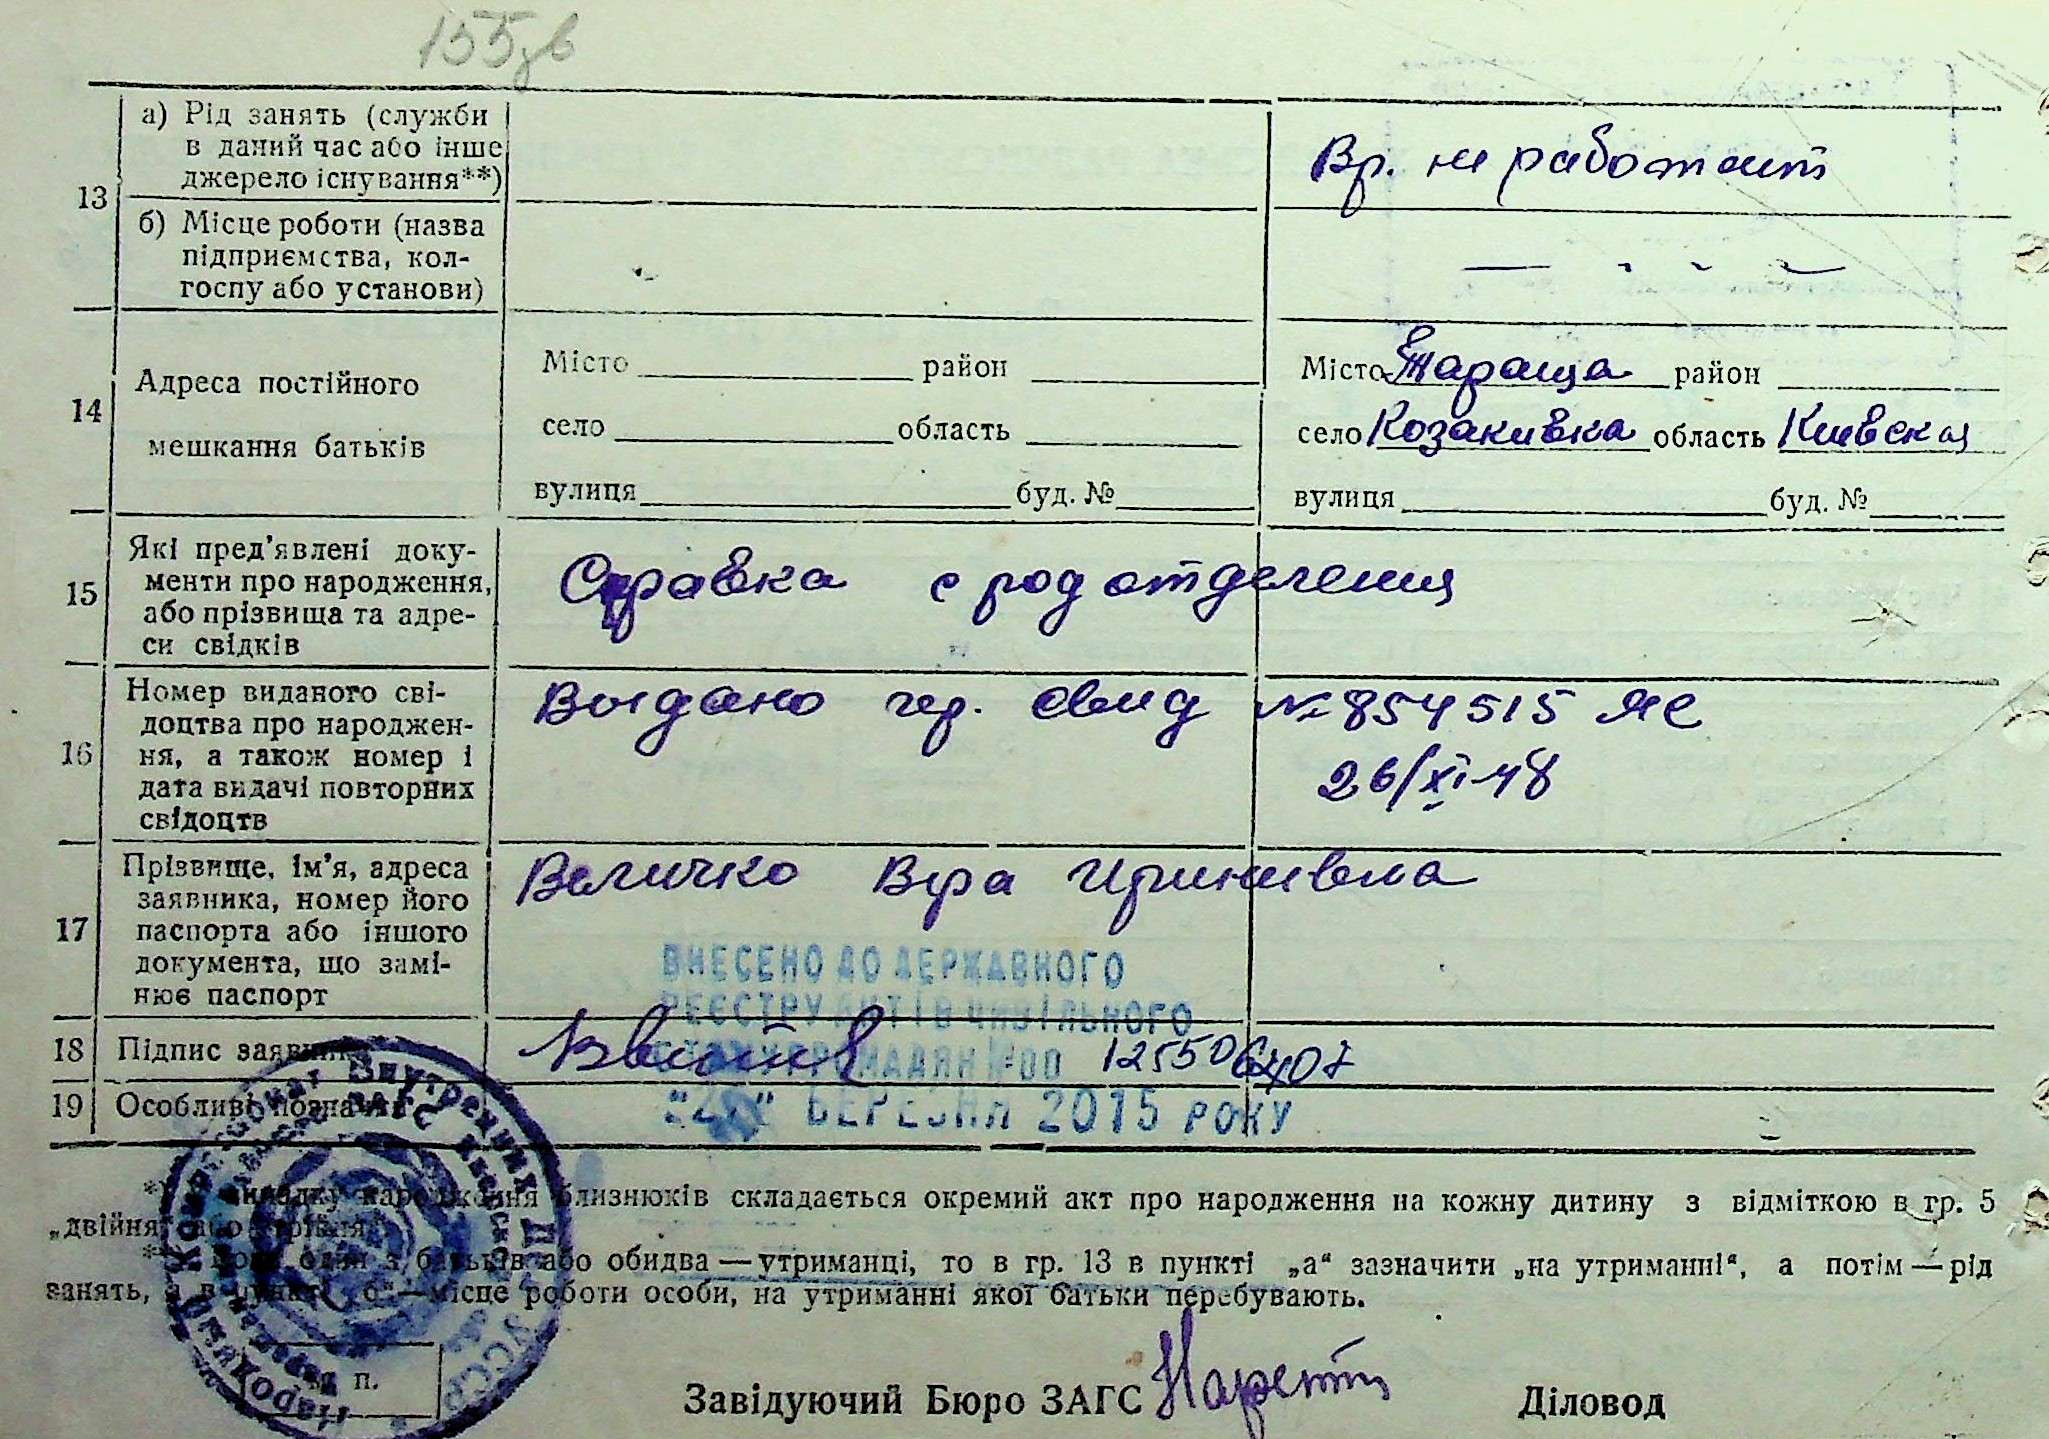 155зв
а) Рід занять (служби
в даний час або інше
джерело існування**)
Вр. не работает
13
б) Місце роботи (назва
підприємства, кол-
госпу або установи)
14
Адреса постійного
мешкання батьків
Місто район
село область
вулиця буд. №
Місто Тараща район
село Козакивка область Киевская
вулиця буд. №
15
Які пред'явлені доку-
менти про народження,
або прізвища та адре-
си свідків
Справка с род отделения
16
Номер виданого сві-
доцтва про народжен-
ня, а також номер і
дата видачі повторних
свідоцтв
Выдано чер. свид №854515 ЯС
26/XI-48
17
Прізвище, ім'я, адреса
заявника, номер його
паспорта або іншого
документа, що замі-
нює паспорт
Величко Вера
ВНЕСЕНО ДО ДЕРЖАВНОГО
РЕЄСТРУ АКТІВ ЦИВІЛЬНОГО
СТАНУ ГРОМАДЯН №00 125506407
БЕРЕЗНЯ 2015 РОКУ
18 Підпис заявника
19 Особливі позначки
*) У випадку народження близнюків складається окремий акт про народження на кожну дитину з відміткою в гр. 5
„двійня" або „трійня".
**) Коли один з батьків або обидва — утриманці, то в гр. 13 в пункті „а" зазначити „на утриманні", а потім — рід
занять, а в пункті „б" — місце роботи особи, на утриманні якої батьки перебувають.
м. п.
Завідуючий Бюро ЗАГС Діловод